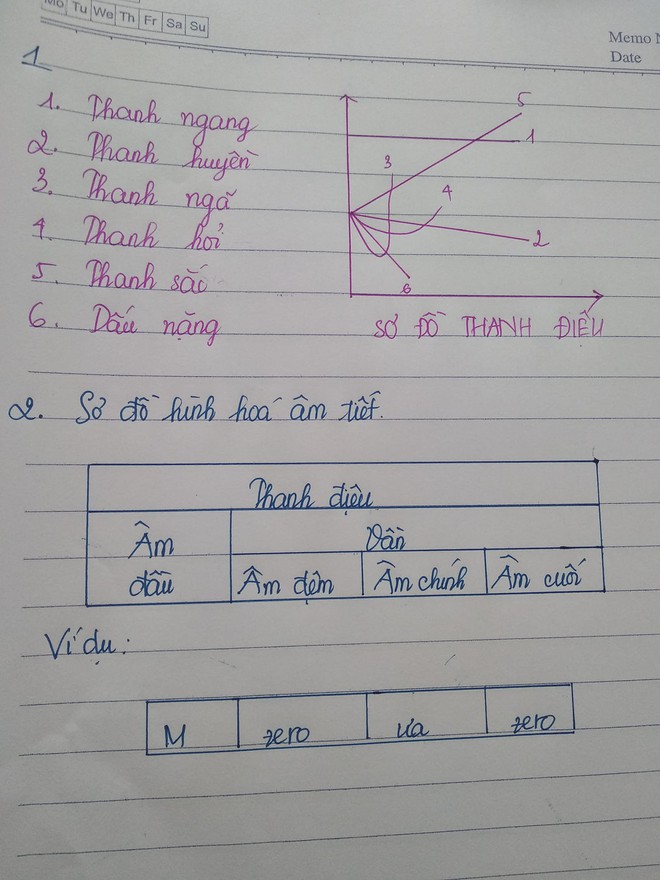 Mo Tu We Th Fr Sa Su
Memo N
Date
1
1. Thanh ngang
2. Thanh huyền
3. Thanh ngã
4. Thanh hỏi
5. Thanh sắc
6. Dấu nặng
5
1
3
4
2
6
SƠ ĐỒ THANH ĐIỆU
2. Sơ đồ hình hoá âm tiết.
Thanh điệu
Âm đầu
Vần
Âm đệm
Âm chính
Âm cuối
Ví dụ:
M zero ưa zero